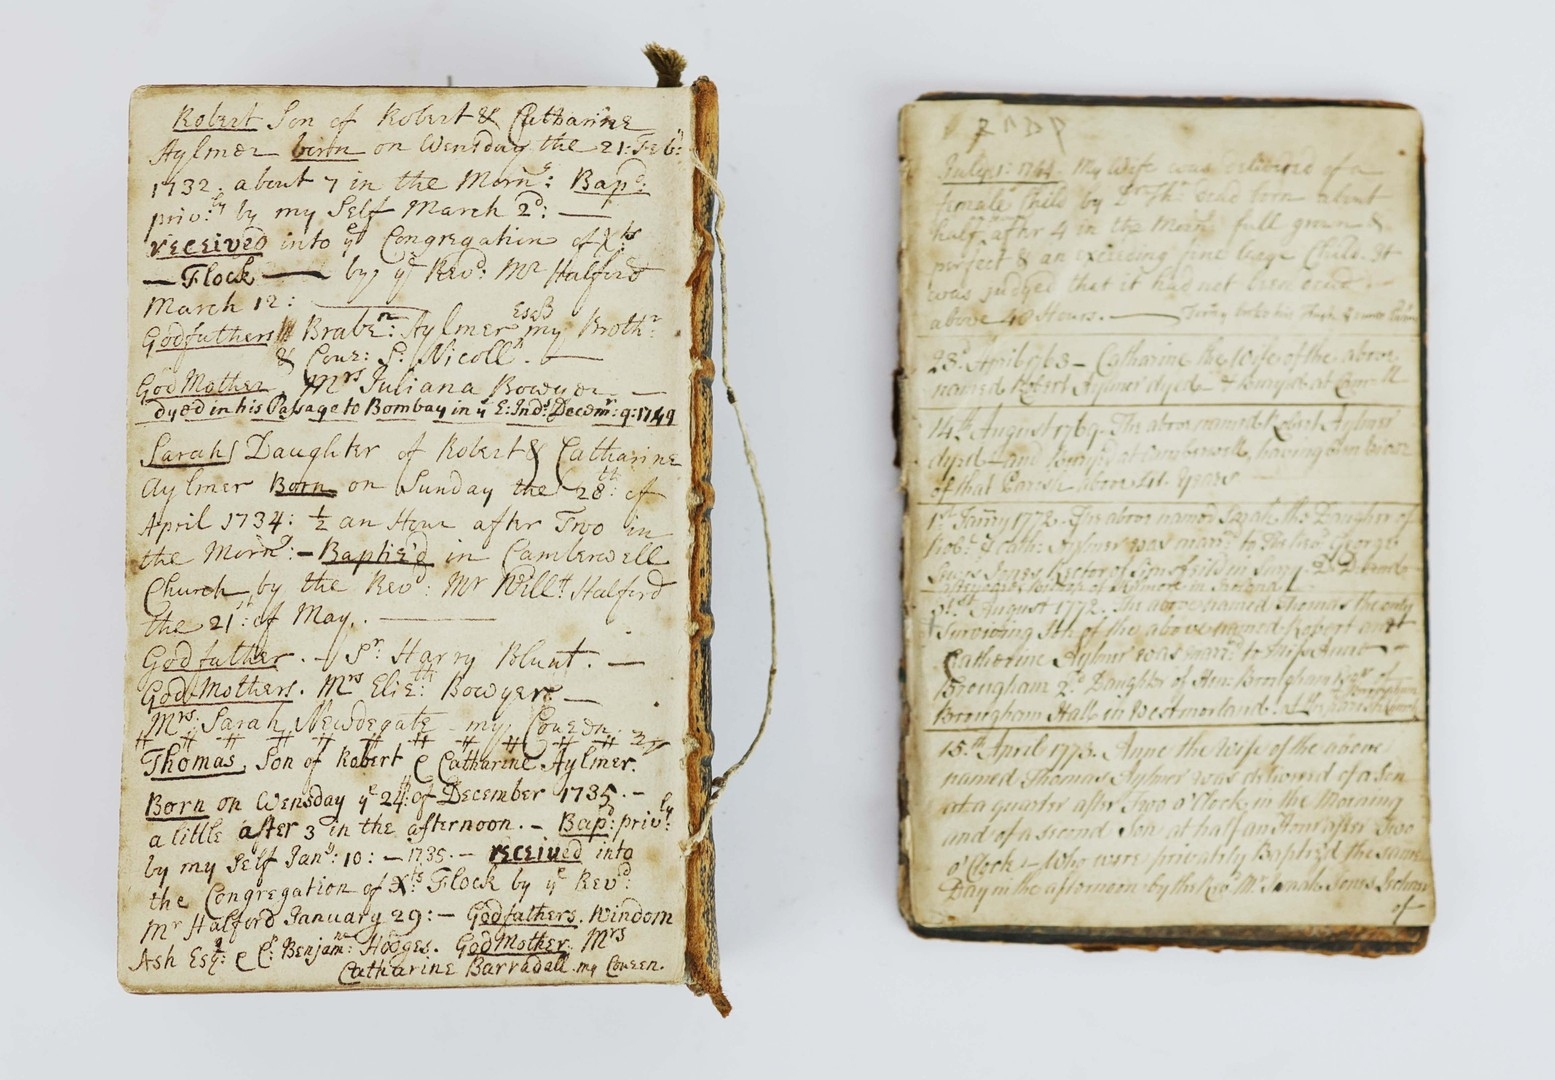 Robert Son of Robert & Catharine
Aylmer born on Wensday the 21: Feb:
1732. about 7 in the Morn:g Bapd:
priv:ly by my Self March 2d: —
received into ye Congregation of Xts
— Flock — by ye Revd: Mr Halford
March 12: —
Godfathers Braben: Aylmer Esq my Brothr
& Couz: S: Nicoll. —
GodMother, Mrs Juliana Bowyer —
dyed in his Passage to Bombay in ye E: Inds Decemr: 9: 1749
Sarah Daughter of Robert & Catharine
Aylmer Born on Sunday the 28th: of
April 1734: ½ an Hour after Two in
the Morng: — Baptiz'd in Camberwell
Church by the Revd: Mr Willm Halford
the 21st: of May. —
Godfather. — Sr: Harry Blunt. —
GodMothers. Mrs Eliz:th Bowyer —
Mrs: Sarah Newdegate my Couzn.
Thomas, Son of Robert & Catharine Aylmer.
Born on Wensday ye 24th: of December 1735. —
a little after 3 in the afternoon. — Bapd: privly:
by my Self Jany: 10: — 1735. — received into
the Congregation of Xts: Flock by ye Revd:
Mr Halford January 29: — Godfathers. Windom
Ash Esqr: & Benjamn: Hodges. GodMother. Mrs
Catharine Barradall my Couzen.
July 1: 1744. My Wife was delivered of a
female Child by Dr Dead born about
half after 4 in the Morng: full grown &
perfect & an exceeding fine large Child. It
was judged that it had not been dead
above 40 Hours. —
23d. April 1763 — Catharine the Wife of the above
named Robert Aylmer dyed & Buryed at Camll
14th August 1769. The above named Robert Aylmer
dyed and Buryed at Camberwell, having been Vicar
of that Parish above Years —
1st Janry 1772. The above named Sarah the Daughter of
Robt & Cath: Aylmer was marrd to the Revd George
Lewis Jones Rector of in Surry D:D and
afterwards Bishop of Kilmore in Ireland
31st August 1772. The above named Thomas the only
Surviving Son of the above named Robert and
Catherine Aylmer was marrd to Miss Anne
Brougham 2d Daughter of Hen: Brougham Esqr of
Brougham Hall in Westmorland. at the Parish Church
15th April 1773. Anne the Wife of the above
named Thomas Aylmer was delivered of a Son
at a quarter after Two o'Clock in the Morning
and of a second Son at half an Hour after Two
o'Clock — Who were privately Baptiz'd the same
Day in the afternoon by the Revd Mr Jones
of